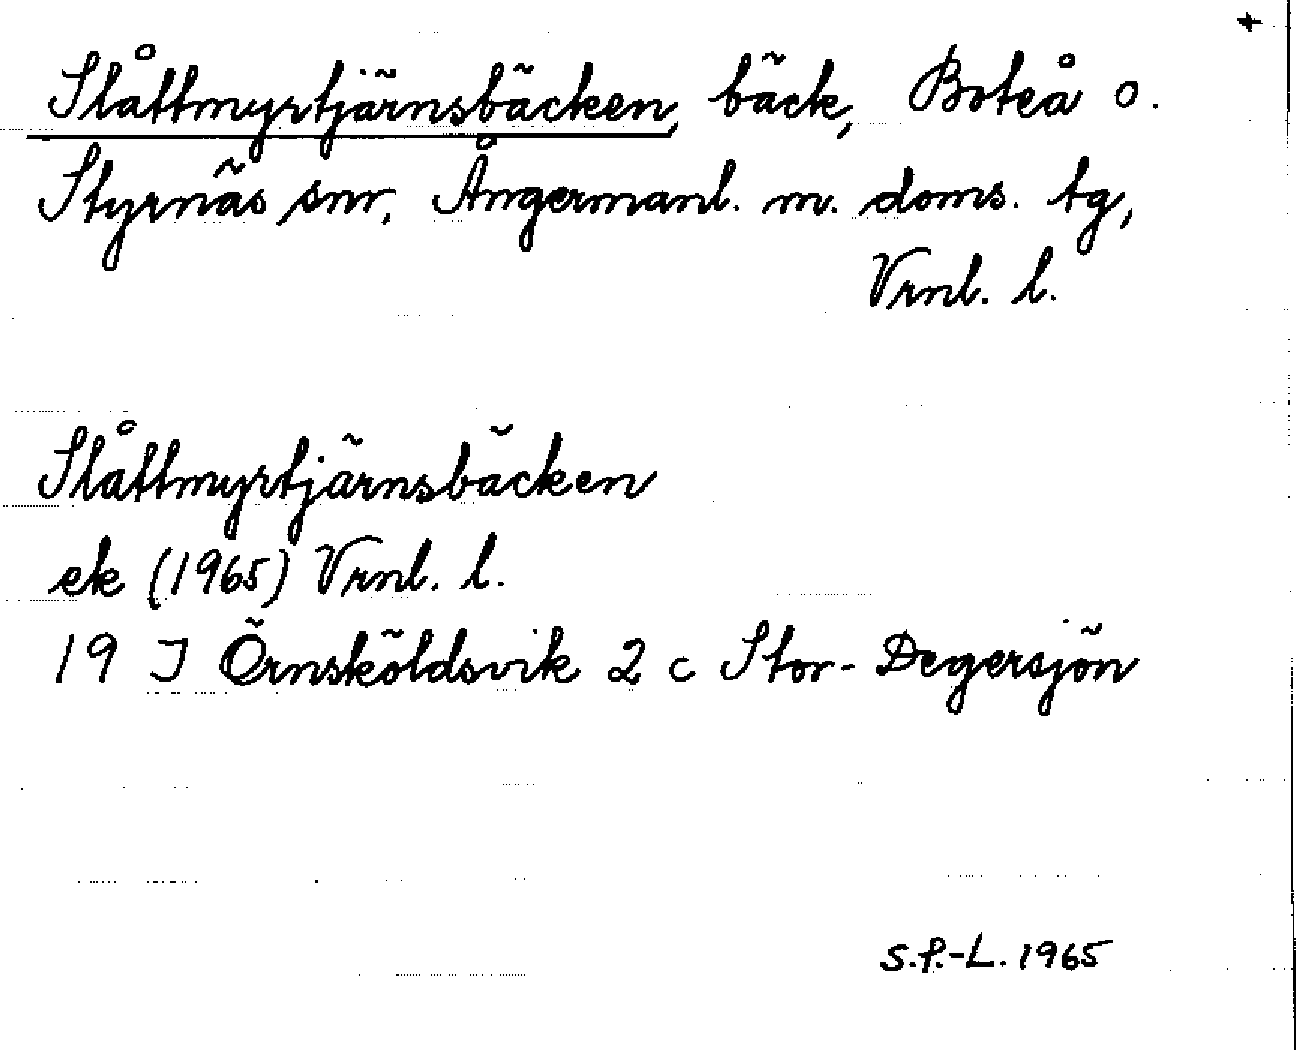 +
Slåttmyrtjärnsbäcken, bäck, Boteå o.
Styrnäs snr, Ångermanl. m. doms. tg,
Vrnl. l.
Slåttmyrtjärnsbäcken
ek (1965) Vrnl. l.
19 J Örnsköldsvik 2 c Stor-Degersjön
S.P.-L. 1965